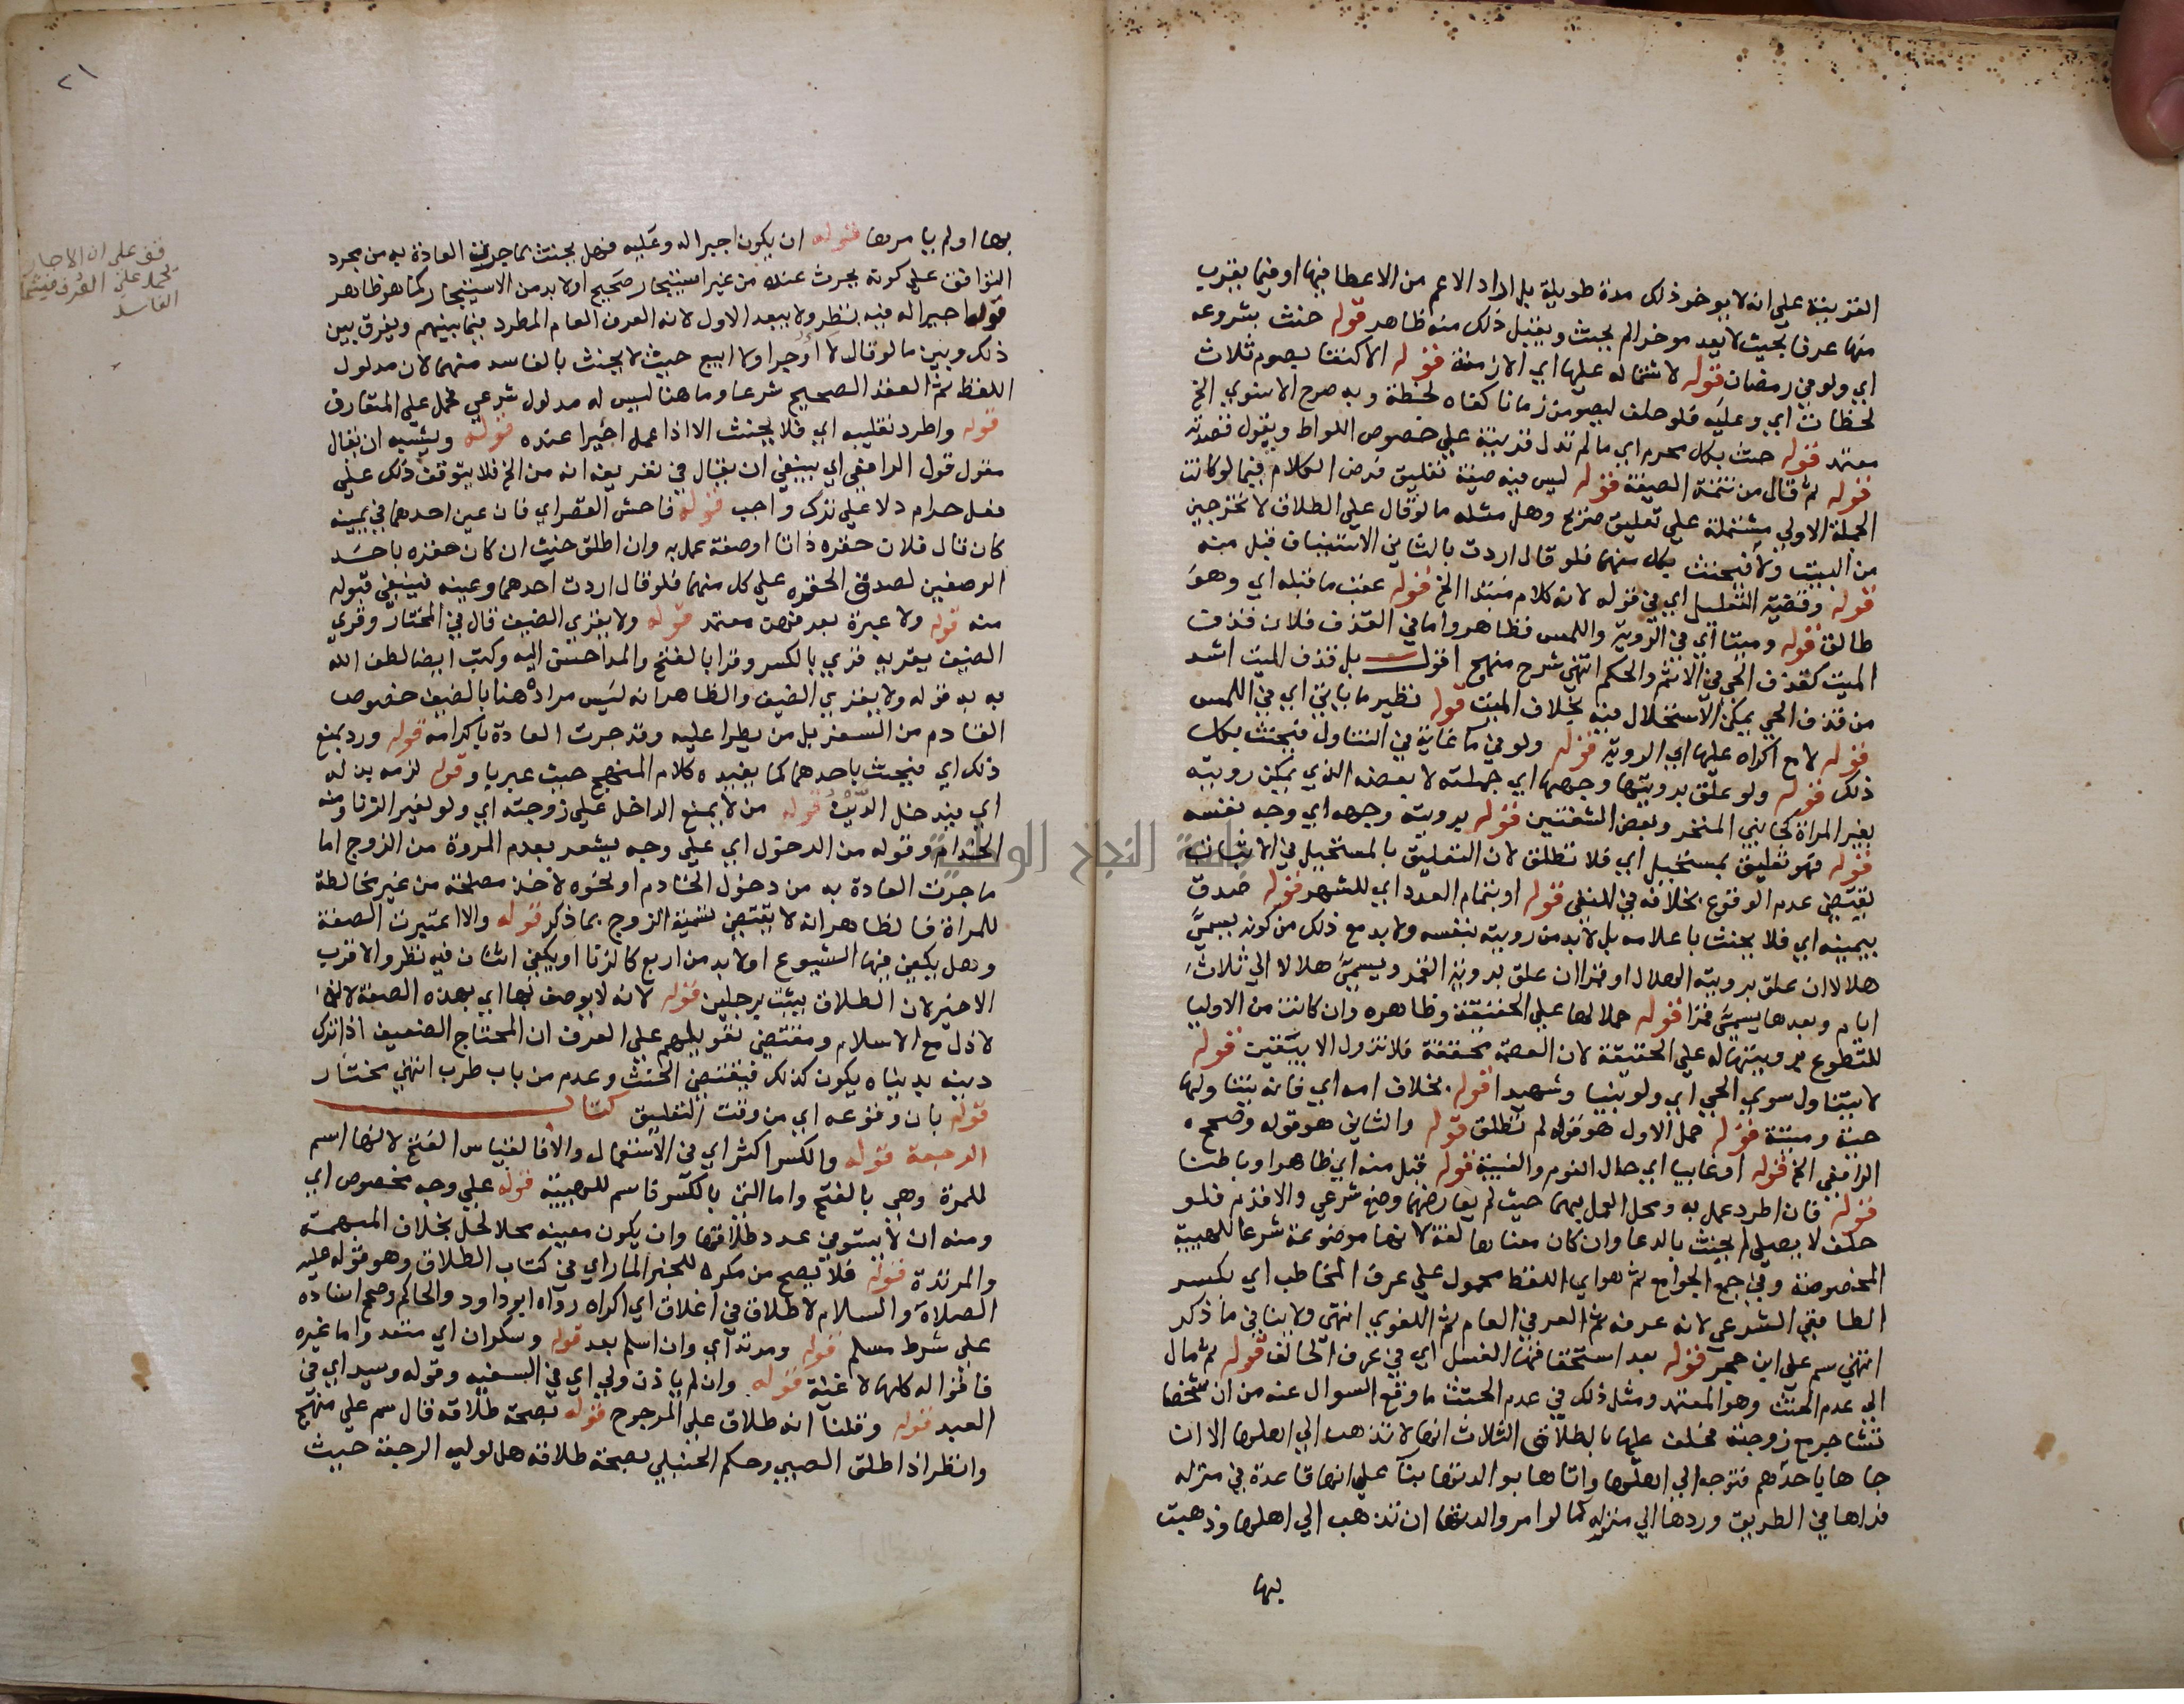 القرينة على انه لا يوخر ذلك مدة طويلة بل اراد الاعم من الاعطا فيها او فيما يقرب
منها عرفا بحيث لا يعد موخرا لم يحنث ويقبل ذلك منه ظاهر قوله حنث بشروعه
اي ولو في رمضان قوله لاشتماله عليها اي الازمنة قوله الاكتفا بصوم ثلاث
لحظات اي وعليه فلو حلف ليصومن زمانا كفاه لحظة وبه صرح الاسنوي الخ
معتمد قوله حنث بكل محرم اي ما لم تدل قرينة على خصوص اللواط ويقول قصدته
قوله ثم قال من تتمة الصيغة قوله ليس فيه صيغة تعليق فرض الكلام فيما لو كانت
الجملة الاولى مشتملة على تعليق صريح وهل مثله ما لو قال على الطلاق لا تخرجين
من البيت ولا فيحنث بكل منهما فلو قال اردت بالثاني الاستيناف قبل منه
قوله وقضية التعليل اي في قوله لانه كلام مبتدا الخ قوله عقب ما قبله اي وهو
طالق قوله وميتا اي في الروية واللمس فظاهر واما في القذف فلان قذف
الميت كقذف الحي في الاثم والحكم انتهى شرح منهج اقول بل قذف الميت اشد
من قذف الحي يمكن الاستحلال منه بخلاف الميت قوله نظير ما ياتي اي في اللمس
قوله لا مع اكراه عليها اي الروية قوله ولو في ما غايته في التناول فيحنث بكل
ذلك قوله ولو علق برويتها وجهها اي جملته لا بعضه الذي يمكن رويته
بغير المراة كجانبي المنخر وبعض الشفتين قوله بروية وجهه اي وجه نفسه
قوله فهو تعليق بمستحيل اي فلا تطلق لان التعليق بالمستحيل في الاثبات
يقتضي عدم الوقوع بخلافه في النفي قوله او بتمام العدد اي للشهر قوله صدق
بيمينه اي فلا يحنث باعلامه بل لا بد من رويته بنفسه ولا بد مع ذلك من كونه يسمى
هلالا ان علق بروية الهلال او قمرا ان علق بروية القمر ويسمى هلالا الى ثلاث
ايام وبعدها يسمى قمرا قوله حملا لها على الحقيقة وظاهره وان كانت من الاوليا
للقطوع برويتها له على الحقيقة لان العصمة محققة فلا تزول الا بيقين قوله
لا يتناول سوى الحي اي ولو نبيا وشهيدا قوله بخلاف امه اي فانه يتناولها
حية وميتة قوله حمل الاول هو قوله لم تطلق قوله والثاني هو قوله وصححه
الرافعي الخ قوله او غايبا اي حال النوم والغيبة قوله قبل منه اي ظاهرا وباطنا
قوله فان اطرد عمل به ومحل العمل بهما حيث لم يعارضهما وضع شرعي والا قدم فلو
حلف لا يصلي لم يحنث بالدعا وان كان معناها لغة لانها موضوعة شرعا للهيية
المخصوصة وفي جمع الجوامع ثم هو اي اللفظ محمول على عرف المخاطب اي بكسر
الطا ففي الشرعي لانه عرفه ثم العرفي العام ثم اللغوي انتهى ولا ينافي ما ذكر
انتهى سم على ابن حجر قوله بعد استحقاقها الغسل اي في عرف الحالف قوله ثم مال
الى عدم الحنث وهو المعتمد ومثل ذلك في عدم الحنث ما وقع السوال عنه من ان شخصا
تشاجر مع زوجته فحلف عليها بالطلاق الثلاث انها لا تذهب الى اهلها الا ان
جاها باحدهم فتوجه الى اهلها واتاها بوالدتها بنا على انها قاعدة في منزله
فراها في الطريق وردها الى منزله كما لو امر والدتها ان تذهب الى اهلها وذهبت
بها
٢١
بها او لم يامرها قوله ان يكون اجيرا له وعليه فهل يحنث بما جرت العادة به من مجرد
التوافق على كونه يحرث عنده من غير استيجار صحيح او لا بد من الاستيجار كما هو ظاهر
قوله اجيرا له فيه نظر ولا يبعد الاول لانه العرف العام المطرد فيما بينهم ويفرق بين
ذلك وبين ما لو قال لا اوجر او لا ابيع حيث لا يحنث بالفاسد منهما لان مدلول
اللفظ ثم العقد الصحيح شرعا وما هنا ليس له مدلول شرعي فحمل على المتعارف
قوله واطرد تغليبه اي فلا يحنث الا اذا عمل اجيرا عنده قوله ويشبه ان يقال
مقول قول الرافعي اي ينبغي ان يقال في تعريفه انه من الخ فلا يتوقف ذلك على
فعل حرام دلا على ترك واجب قوله فاحش القصر اي فان عين احدهما في يمينه
كان قال فلان حقره ذاتا او صفة عمل به وان اطلق حنث ان كان حقره باحد
الوصفين لصدق الحقره على كل منهما فلو قال اردت احدهما وعينه فينبغي قبوله
منه قوله ولا عبرة بعد فهن معتمد قوله ولا يقري الضيف قال في المختار وقرى
الضيف يقريه قري بالكسر وقرا بالفتح والمد احسن اليه وكتب ايضا لطف الله
به به قوله ولا يقري الضيف والظاهر انه ليس مراده هنا بالضيف خصوص
القادم من السفر بل من يطرا عليه وقد جرت العادة باكرامه قوله ورد بمنع
ذلك اي فيحنث باحدهما كما يفيده كلام المنهج حيث عبر باو قوله لزمه بدله
اي بيدخل الديث قوله من لا يمنع الداخل على زوجته اي ولو لغير الزنا ومنه
الخدام وقوله من الدخول اي على وجه يشعر بعدم المروة من الزوج اما
ما جرت العادة به من دخول الخادم او نحوه لاخذ مصلحة من غير مخالطة
للمراة فالظاهر انه لا يقتضي تسمية الزوج بما ذكر قوله والا اعتبرت الصفة
وهل يكفي فيها الشيوع او لا بد من اربع كالزنا او يكفي اثنان فيه نظر والاقرب
الاخير لان الطلاق يثبت برجلين قوله لانه لا يوصف بها اي بهذه الصفة لانها
لا ذل مع الاسلام ومقتضى تعويلهم على العرف ان المحتاج الضعيف اذا ترك
دينه بدنياه يكون كذلك فيقتضي الحنث وعدم من باب طرب انتهى مختار
قوله بان وقوعه اي من وقت التعليق كتاب
الرجعة قوله والكسر اكثر اي في الاستعمال والا فالقياس الفتح لانها اسم
للمرة وهي بالفتح واما التي بالكسر فاسم للهيية قوله على وجه مخصوص اي
ومنه ان لا يستوفي عدد طلاقها وان يكون معينه محلا لحل بخلاف المبهمة
والمرتدة قوله فلا يصح من مكره للخبر المار اي في كتاب الطلاق وهو قوله عليه
الصلاة والسلام لا طلاق في اغلاق اي اكراه رواه ابو داود والحاكم وصحح اسناده
على شرط مسلم قوله ومرتد اي وان اسلم بعد قوله وسكران اي متعد واما غيره
فاقواله كلها لاغية قوله وان لم ياذن ولي اي في السفيه وقوله وسيد اي في
العبد قوله وقلنا انه طلاق على المرجوح قوله بصحة طلاقه قال سم على منهج
وانظر اذا طلق الصبي وحكم الحنبلي بصحة طلاقه هل لوليه الرجعة حيث
قف على ان الاجار
يحمل على العرف فيشمل
الفاسد
النجاح الوطنية